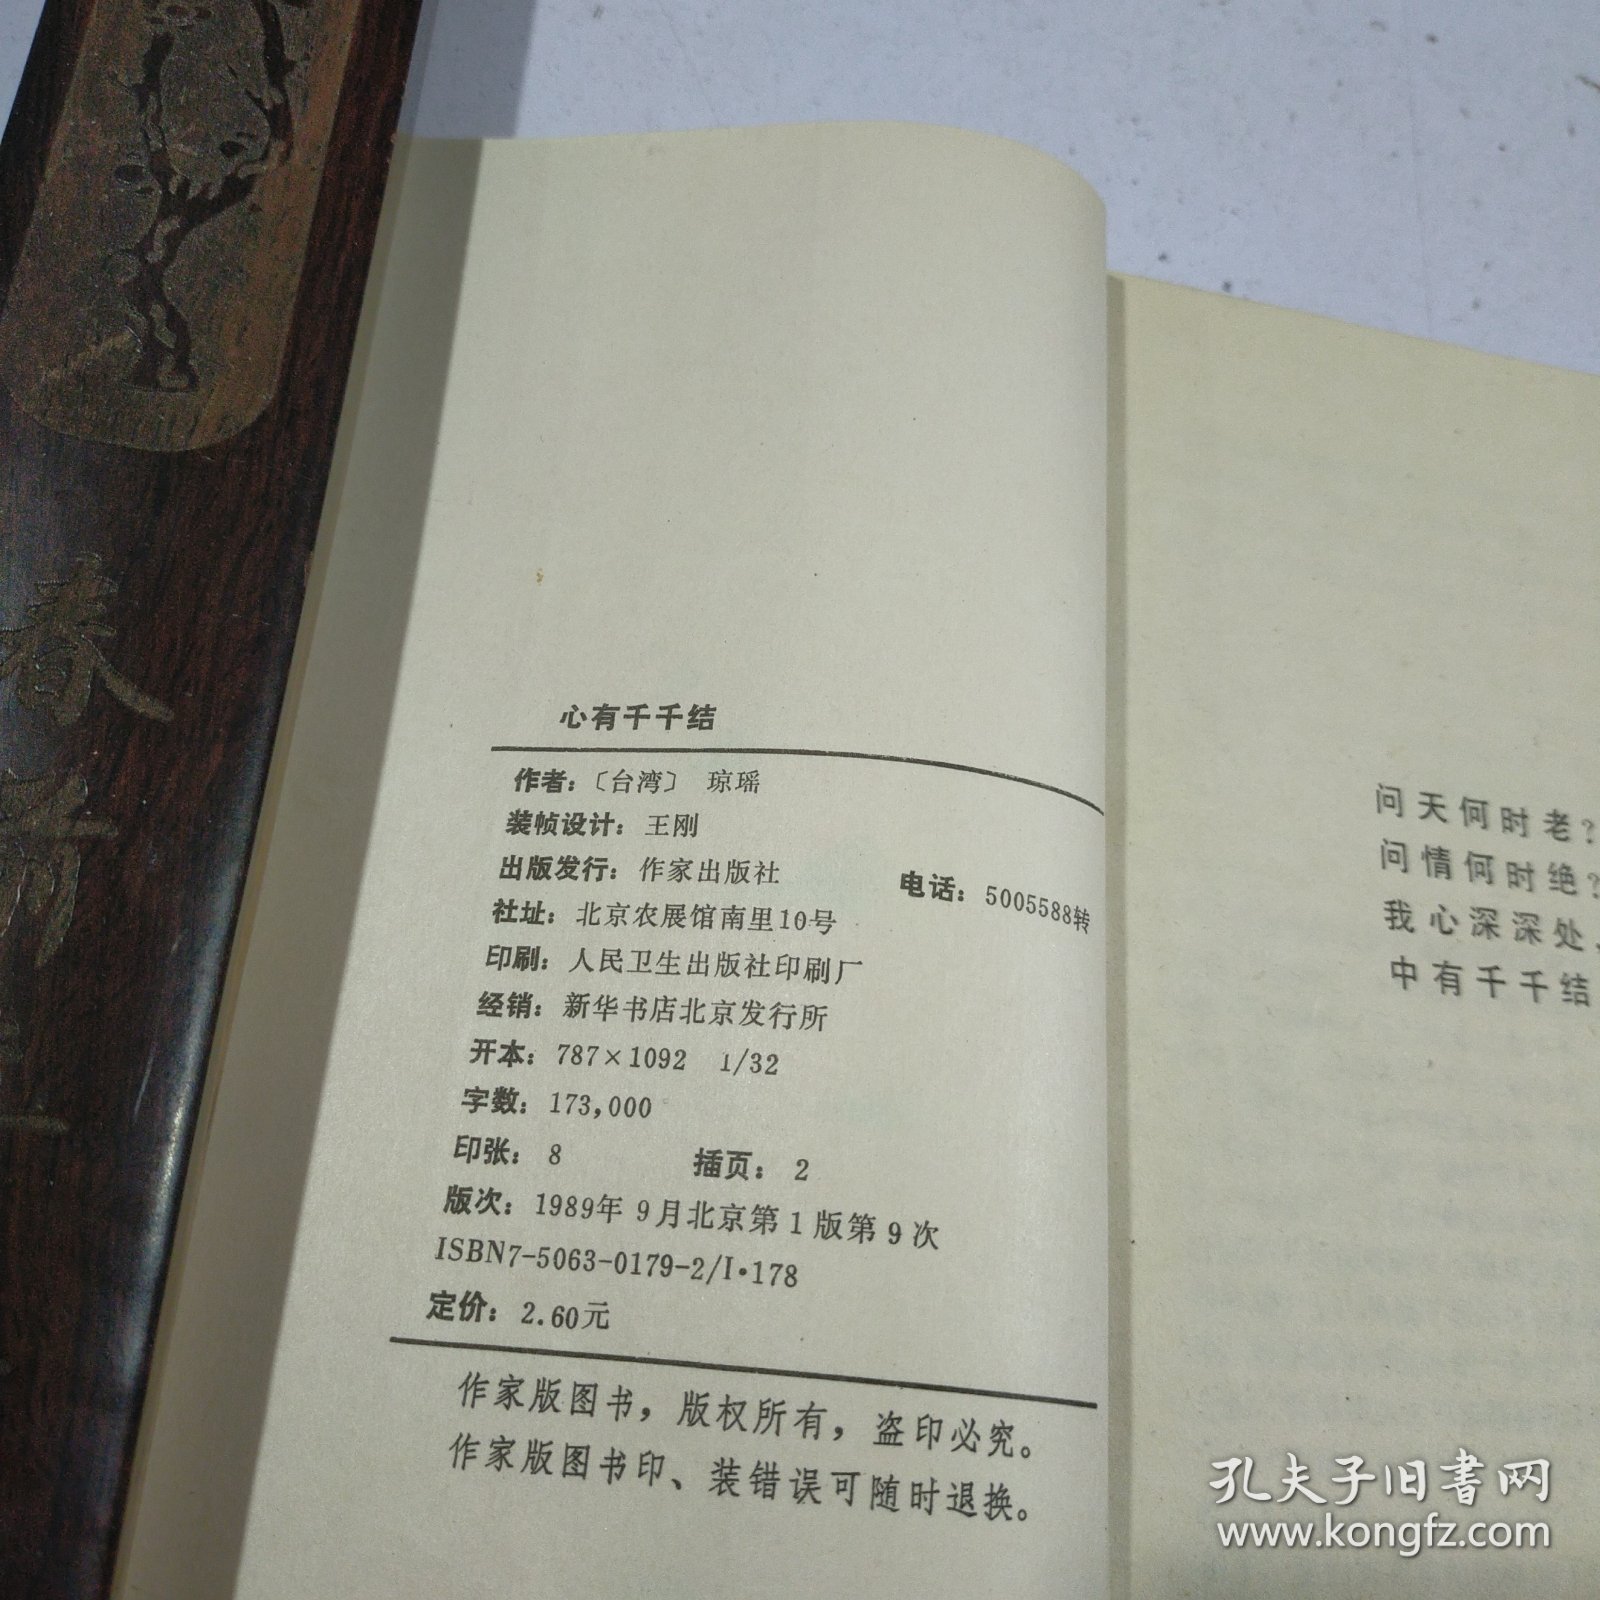 心有千千结
作者：〔台湾〕 琼瑶
装帧设计：王刚
出版发行：作家出版社
电话：5005588转
社址：北京农展馆南里10号
印刷：人民卫生出版社印刷厂
经销：新华书店北京发行所
开本：787×1092 1/32
字数：173,000
印张：8 插页：2
版次：1989年9月北京第1版第9次
ISBN7-5063-0179-2/I·178
定价：2.60元
作家版图书，版权所有，盗印必究。
作家版图书印、装错误可随时退换。
问天何时老？
问情何时绝？
我心深深处，
中有千千结
春
孔夫子旧书网
www.kongfz.com